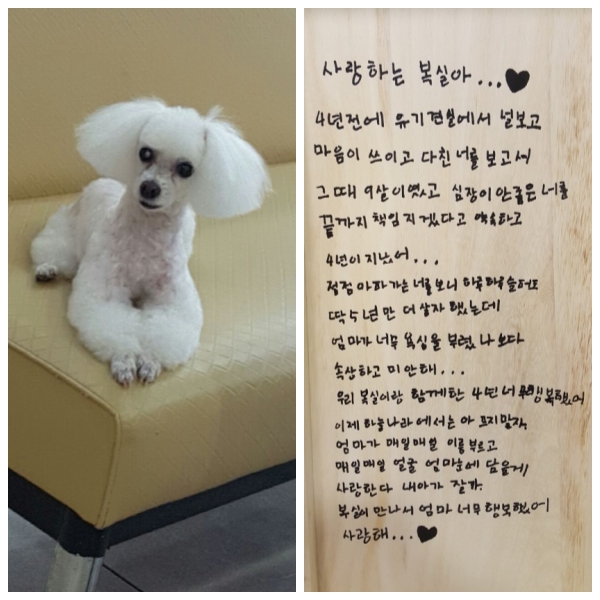 사랑하는 복실아...♥
4년전에 유기견실에서 널보고
마음이 쓰이고 다친 너를 보고서
그때 9살이였고 심장이 안좋은 너를
끝까지 책임지겠다고 약속하고
4년이 지났어...
점점 아파가는 너를 보니 하루하루 슬퍼도
딱 5년만 더 살자 했는데
엄마가 너무 욕심을 부렸나 보다
속상하고 미안해...
우리 복실이랑 함께한 4년 너무 행복했어
이제 하늘나라에서는 아프지말자
엄마가 매일매일 이름부르고
매일매일 얼굴 엄마눈에 담을게
사랑한다 내아가 잘가.
복실이 만나서 엄마 너무 행복했어
사랑해...♥